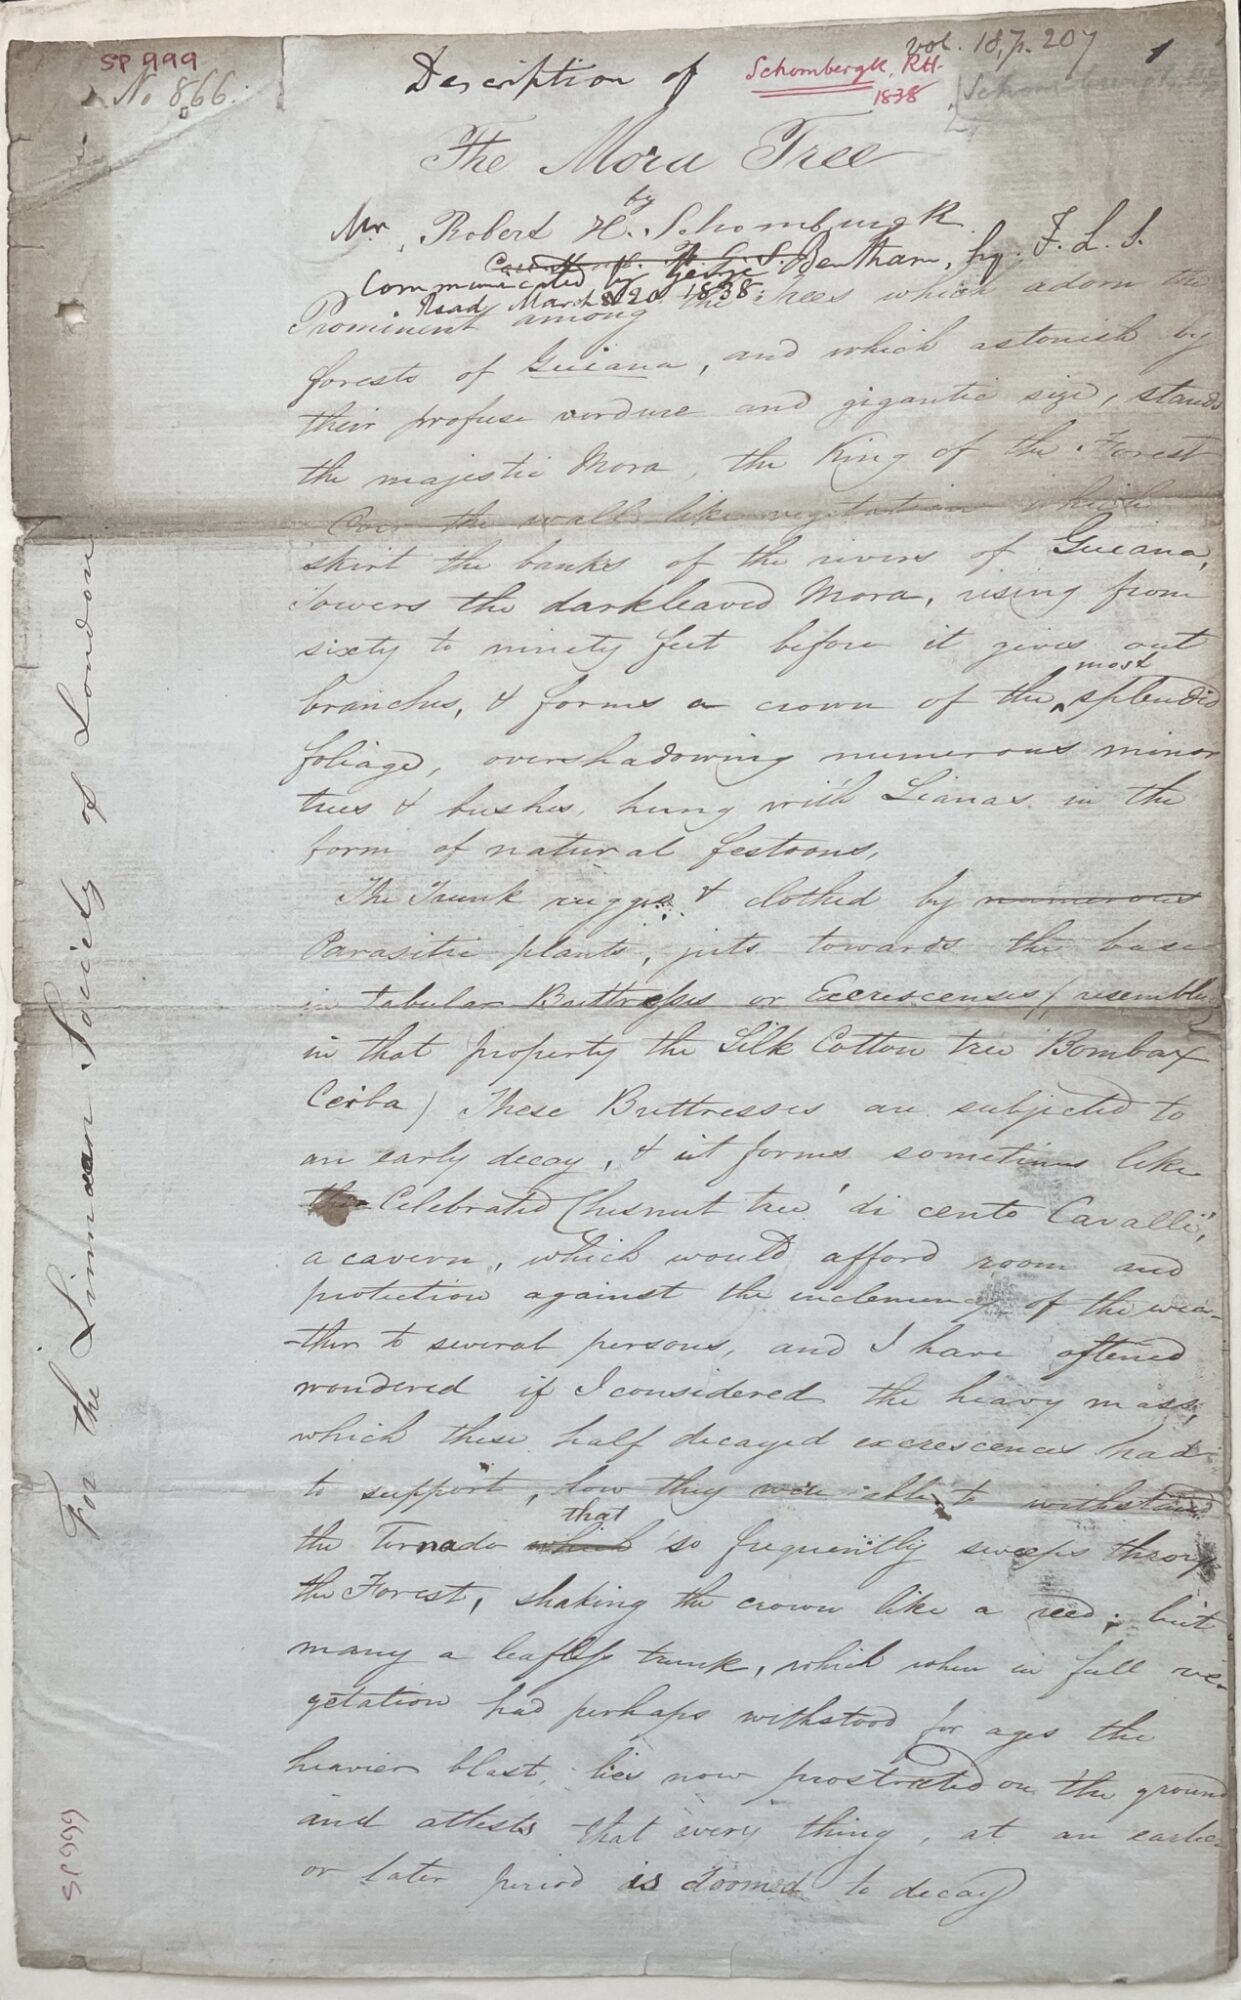 SP 999
No 866.
vol. 18, p. 207
1
Schombergk, RH.
1838
Description of
The Mora Tree
by
Mr. Robert H. Schomburgk
Communicated by George Bentham, Esq. F. L. S.
Read March 20 1838.
Prominent among the Trees which adorn the
forests of Guiana, and which astonish by
their profuse verdure and gigantic size, stands
the majestic Mora, the King of the Forest
Over the wall like vegetation which
skirt the banks of the rivers of Guiana,
towers the darkleaved Mora, rising from
sixty to ninety feet before it gives out
branches, & forms a crown of the most splendid
foliage, overshadowing numerous minor
trees & bushes, hung with Lianas in the
form of natural festoons.
The Trunk rugged & clothed by numerous
Parasitic plants, juts towards the base
in tabular Buttresses or Excrescenses (resembling
in that property the Silk Cotton tree Bombax
Ceiba) These Buttresses are subjected to
an early decay, & it forms sometimes like
the Celebrated Chesnut tree 'di cento Cavalli',
a cavern, which would afford room and
protection against the inclemency of the wea-
-ther to several persons, and I have oftened
wondered if I considered the heavy mass,
which these half decayed excrescences had
to support, how they were able to withstand
the Tornado which that so frequently sweeps through
the Forest, shaking the crown like a reed; but
many a leafless trunk, which when in full ve-
getation had perhaps withstood for ages the
heavier blast, lies now prostrated on the ground
and attests that every thing, at an earlier
or later period is doomed to decay
For the Linnean Society of London
SP999